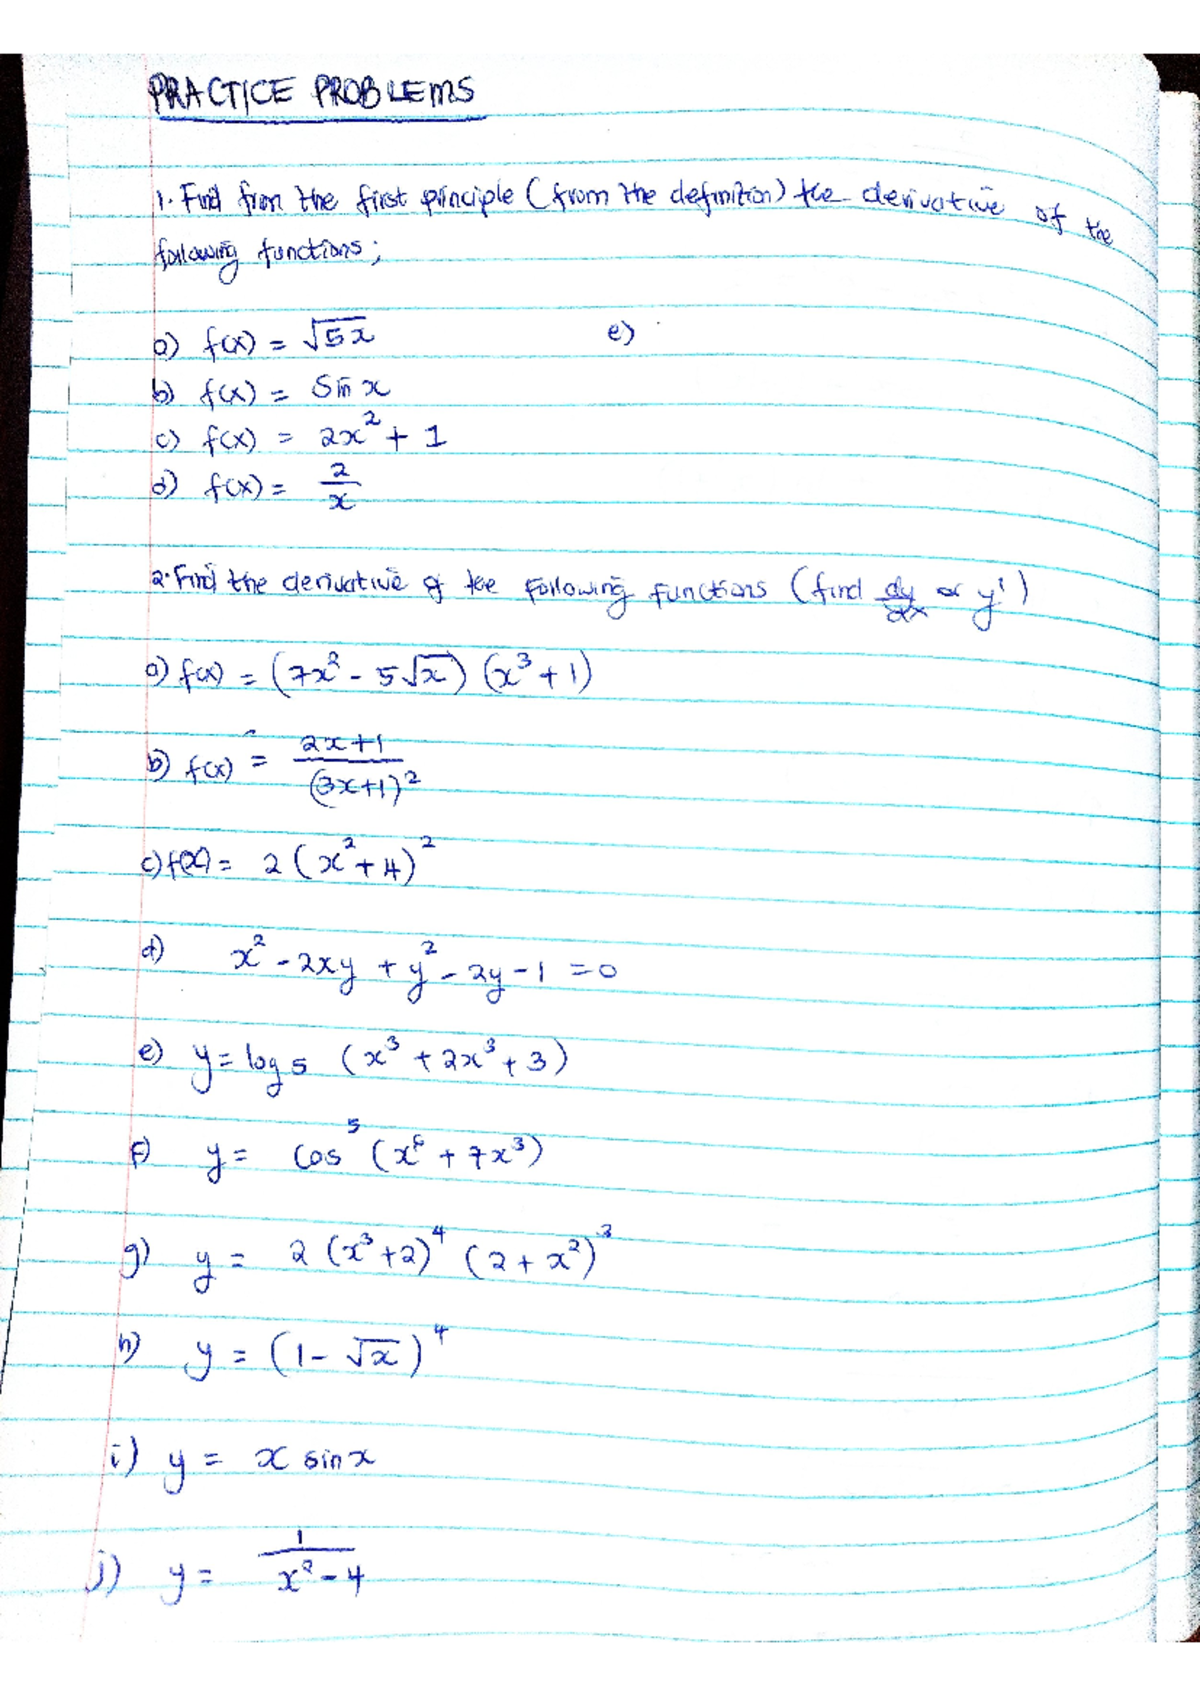 PRACTICE PROBLEMS
1. Find from the first principle (from the definition) the derivative of the
following functions;
a) f(x) = √5x
e)
b) f(x) = Sin x
c) f(x) = 2x² + 1
d) f(x) = 2/x
2. Find the derivative of the following functions (find dy/dx or y')
a) f(x) = (7x² - 5√x) (x³ + 1)
b) f(x) = 2x+1/(3x+1)²
c) f(x) = 2 (x² + 4)²
d) x² - 2xy + y² - 2y - 1 = 0
e) y = log 5 (x³ + 2x³ + 3)
f) y = cos⁵ (x⁶ + 7x³)
g) y = 2 (x³ + 2)⁴ (2 + x²)³
h) y = (1 - √x)⁴
i) y = x sin x
j) y = 1/x² - 4